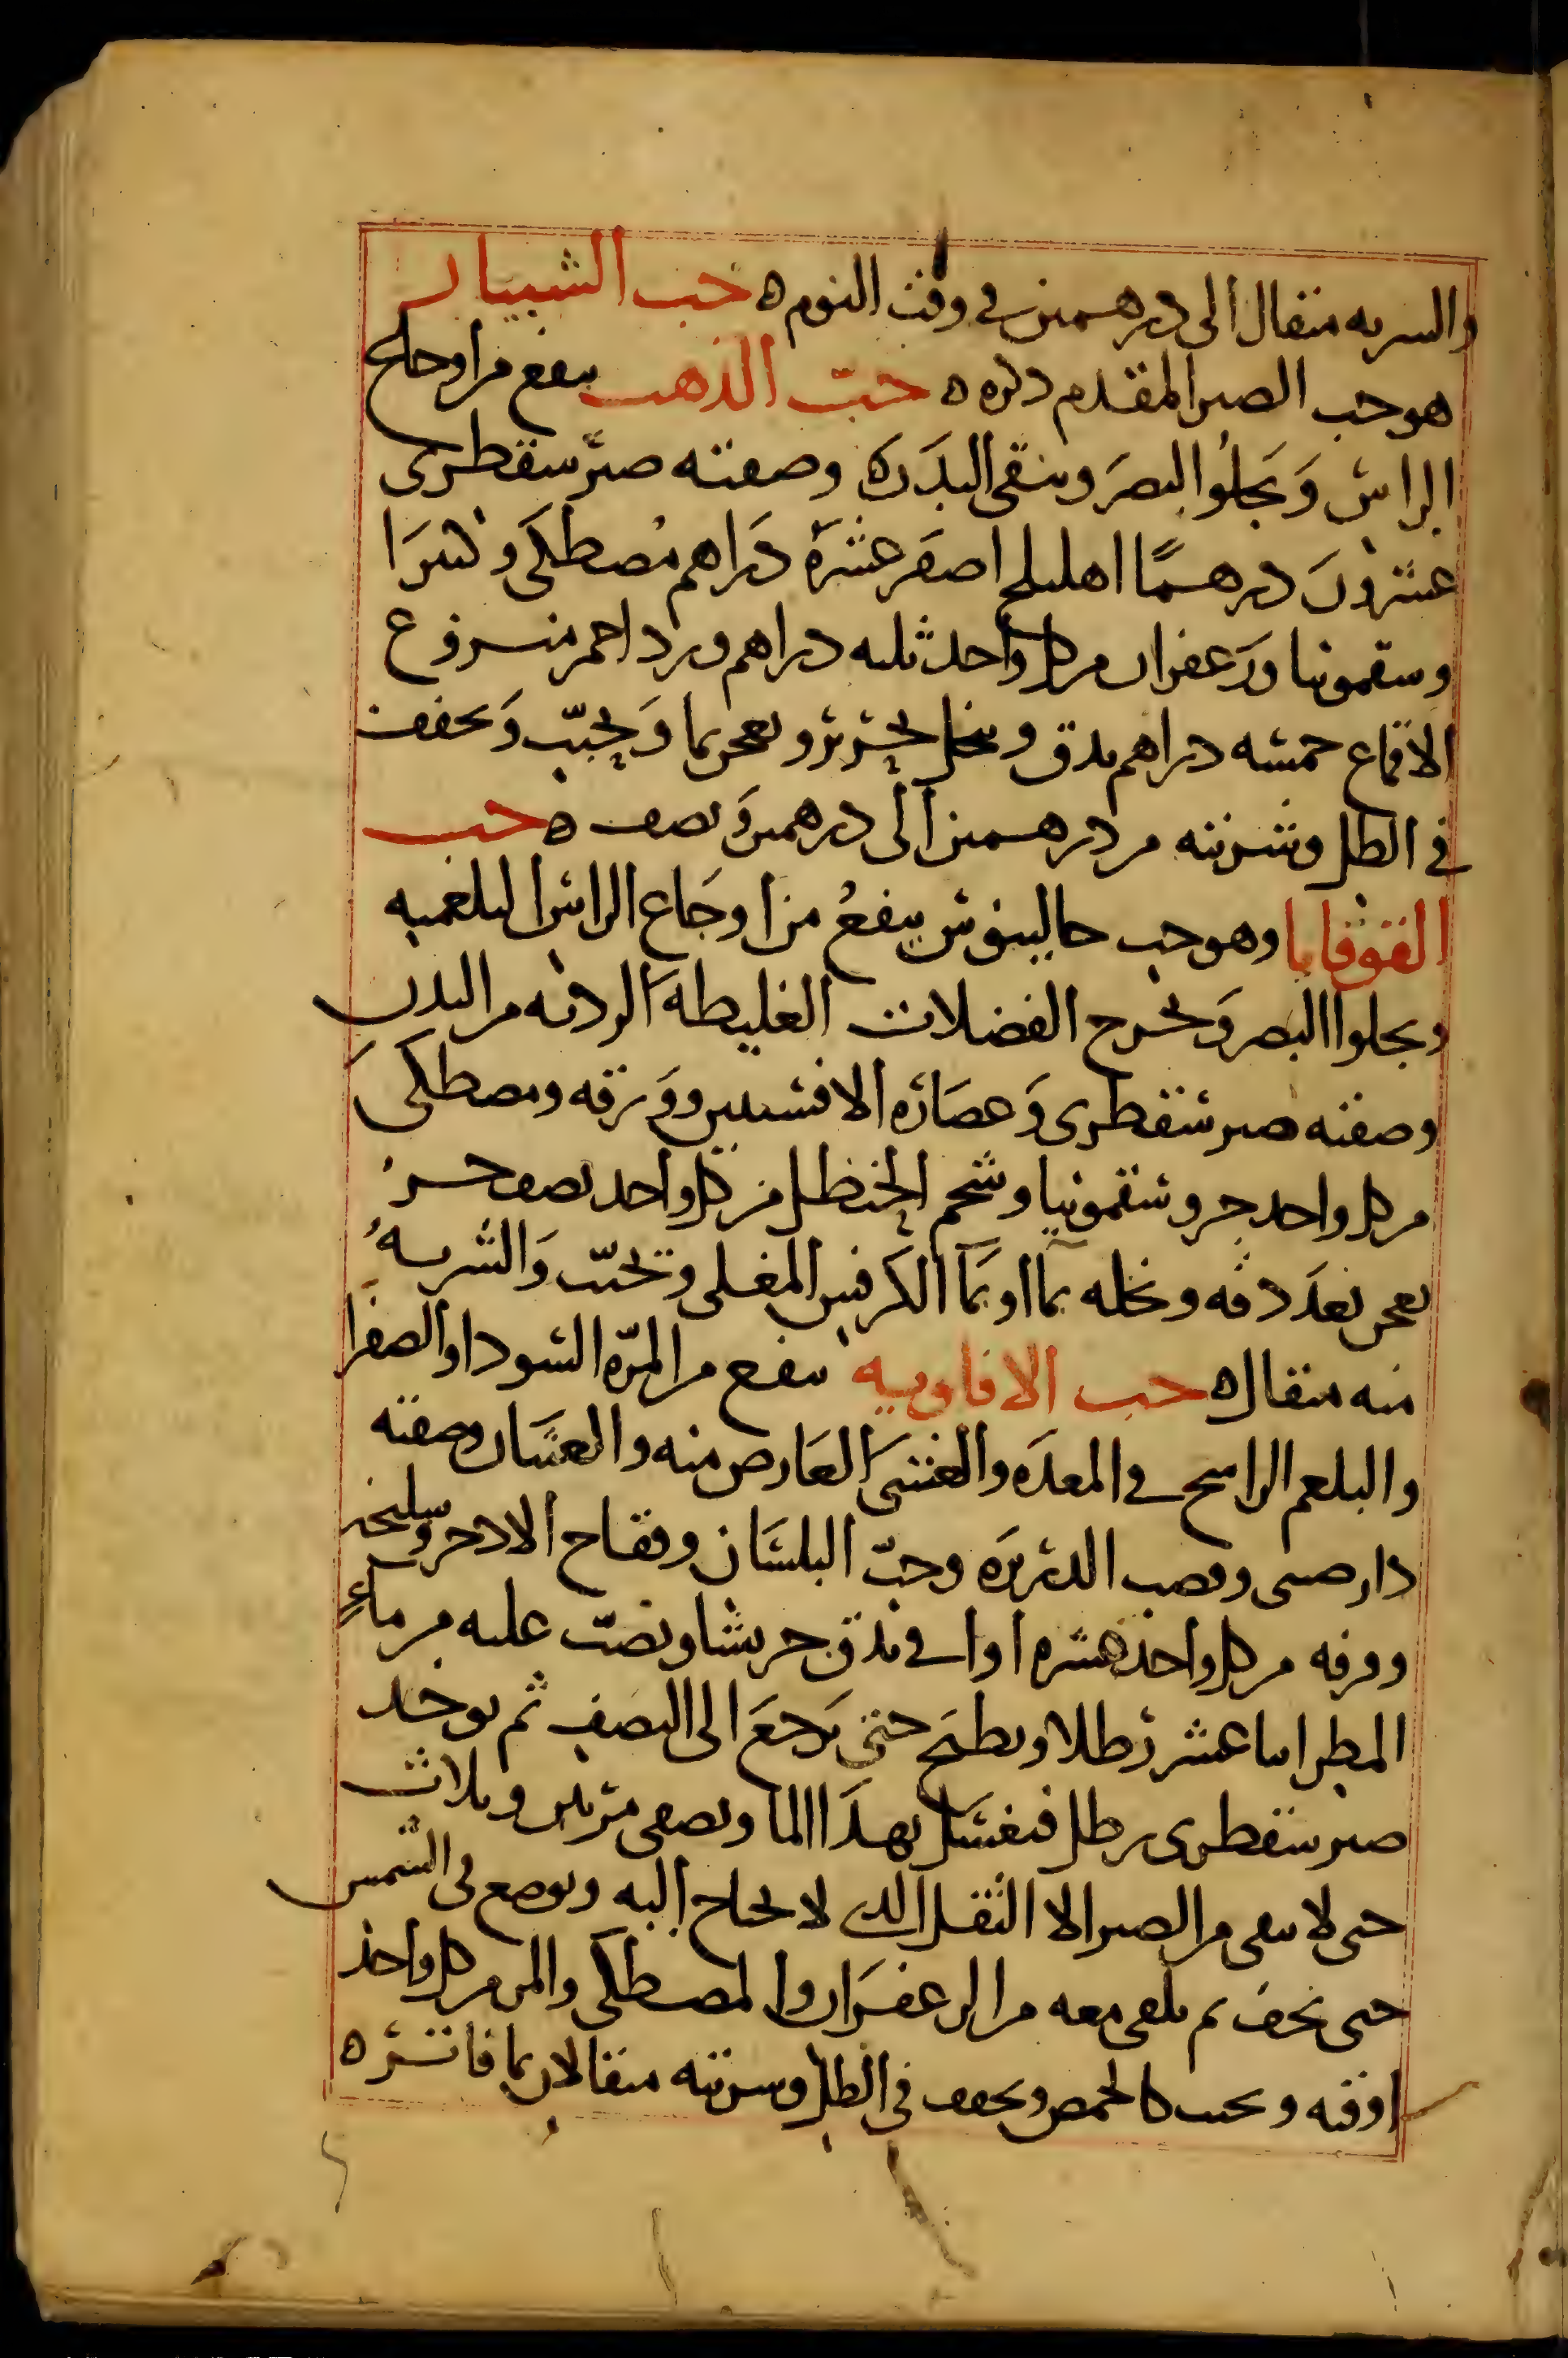 والشربه مثقال الى درهمين في وقت النوم ه حب الشبيار
هو حب الصبر المقدم ذكره ه حبّ الذهب ينفع من اوجاع
الراس وَيجلوُا البصَر وينقى البدَن ه وصفته صبر سقطرى
عشرونَ درهمًا اهليلج اصفَر عشرَة دَراهم مُصطكَى وكثيرَا
وسقمونيا وزعفران من كل واحد ثلثه دراهم ورد احمر منزوع
الاقماع خمسه دراهم يدق وينخل بحريز ويعجن بما وَيحبّب وَيجفف
في الظل وشربته من درهمين الى درهمين وَنصف ه حب
القوقايا وهو حب جالينوس ينفعُ من اوجَاع الراس البلغميه
ويجلوا البصر وَيخرج الفضلات الغليظهَ الرديه من البدن
وصفته صبر سقطرى وَعصَارَه الافسنتين ووَرقه ومصطكىَ
من كل واحد جزو سقمونيا وشحم الحنظل من كل واحد نصف جزو
يعجن بعدَ دقه ونخله بمآ او بمَآ الكرفس المغلى ويحبّب وَالشربهُ
منه مثقال ه حب الافاويه ينفع من المرّه السودا والصفرا
والبلغم الراسخ في المعدَه والغشىَ العَارض منه والغثيَان وصفته
دارصينى وقصب الدريرَه وحبّ البلسَان وفقاح الادخر وسليخه
وورقه من كل واحد عشره اواقى يدق جريشا ويصَبّ عليه من ماءِ
المطر اثنا عشر رَطلا ويطبخَ حتى يَرجعَ الى النصَفِ ثم يوخد
صبر سقطرى رطل فيغسَل بهدَا الما ويصفى مرتين وثلاث
حتى لا يبقى من الصبر الا الثقل الدى لا يحتاج اليه ويوضع فى الشمس
حتى يجف ثم يلقى معه من الزعفرَان والمصطكى والمر من كل واحد
اوقيه ويحبب كالحمص ويجفف فى الظل وشربته مثقالان بما فاتر ه